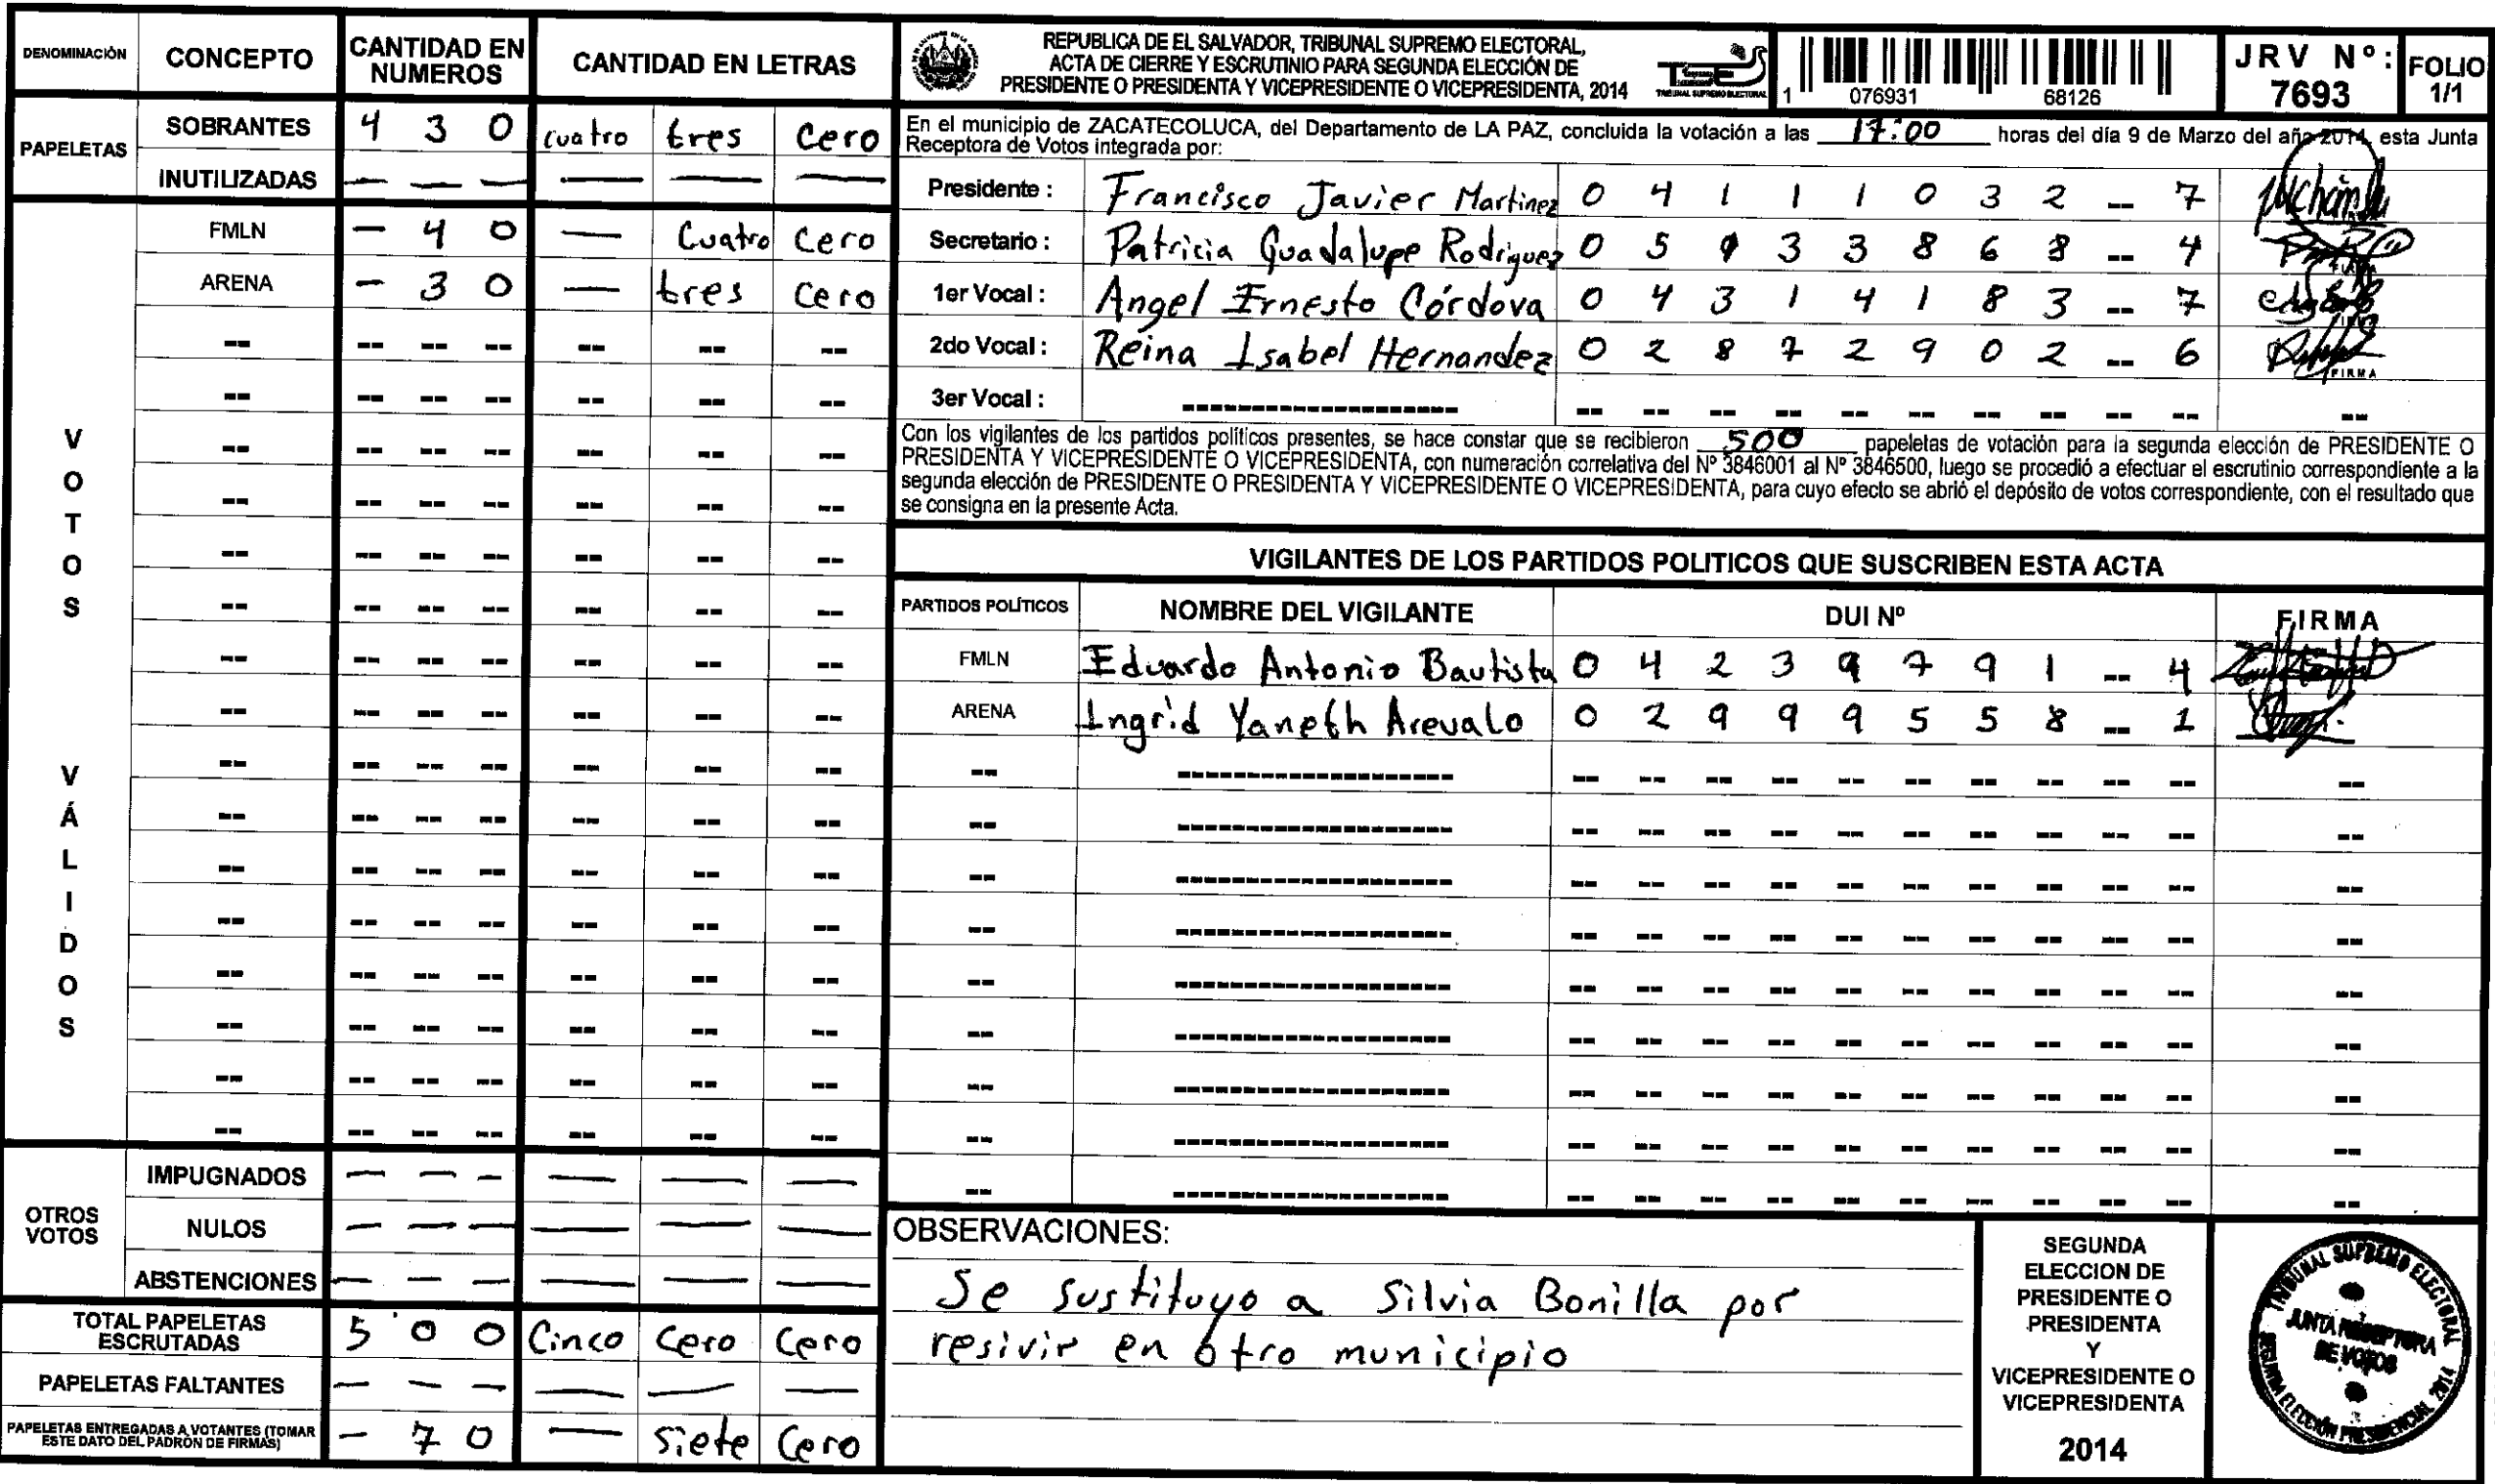 DENOMINACIÓN CONCEPTO CANTIDAD EN NUMEROS CANTIDAD EN LETRAS
PAPELETAS
SOBRANTES 4 3 0 cuatro tres Cero
INUTILIZADAS — — — — — —
VOTOS VÁLIDOS
FMLN — 4 0 — Cuatro Cero
ARENA — 3 0 — tres Cero
OTROS VOTOS
IMPUGNADOS — — — — — —
NULOS — — — — — —
ABSTENCIONES — — — — — —
TOTAL PAPELETAS ESCRUTADAS 5 0 0 Cinco Cero Cero
PAPELETAS FALTANTES — — — — — —
PAPELETAS ENTREGADAS A VOTANTES (TOMAR ESTE DATO DEL PADRÓN DE FIRMAS) — 7 0 — Siete Cero
REPUBLICA DE EL SALVADOR, TRIBUNAL SUPREMO ELECTORAL,
ACTA DE CIERRE Y ESCRUTINIO PARA SEGUNDA ELECCIÓN DE
PRESIDENTE O PRESIDENTA Y VICEPRESIDENTE O VICEPRESIDENTA, 2014
TSE
TRIBUNAL SUPREMO ELECTORAL
1 076931 68126
JRV Nº: 7693
FOLIO 1/1
En el municipio de ZACATECOLUCA, del Departamento de LA PAZ, concluida la votación a las 17:00 horas del día 9 de Marzo del año 2014, esta Junta
Receptora de Votos integrada por:
Presidente : Francisco Javier Martinez 0 4 1 1 1 0 3 2 -- 7
Secretario : Patricia Guadalupe Rodriguez 0 5 3 3 8 6 8 -- 4
1er Vocal : Angel Ernesto Córdova 0 4 3 1 4 1 8 3 -- 7
2do Vocal : Reina Isabel Hernandez 0 2 8 7 2 9 0 2 -- 6
FIRMA
3er Vocal :
Con los vigilantes de los partidos políticos presentes, se hace constar que se recibieron 500 papeletas de votación para la segunda elección de PRESIDENTE O
PRESIDENTA Y VICEPRESIDENTE O VICEPRESIDENTA, con numeración correlativa del Nº 3846001 al Nº 3846500, luego se procedió a efectuar el escrutinio correspondiente a la
segunda elección de PRESIDENTE O PRESIDENTA Y VICEPRESIDENTE O VICEPRESIDENTA, para cuyo efecto se abrió el depósito de votos correspondiente, con el resultado que
se consigna en la presente Acta.
VIGILANTES DE LOS PARTIDOS POLITICOS QUE SUSCRIBEN ESTA ACTA
PARTIDOS POLÍTICOS NOMBRE DEL VIGILANTE DUI Nº FIRMA
FMLN Eduardo Antonio Bautista 0 4 2 3 9 7 9 1 -- 4
ARENA Ingrid Yaneth Arevalo 0 2 9 9 9 5 5 8 -- 1
OBSERVACIONES:
Se sustituyo a Silvia Bonilla por
resivir en otro municipio
SEGUNDA
ELECCION DE
PRESIDENTE O
PRESIDENTA
Y
VICEPRESIDENTE O
VICEPRESIDENTA
2014
TRIBUNAL SUPREMO ELECTORAL
JUNTA RECEPTORA
DE VOTOS
SEGUNDA ELECCIÓN PRESIDENCIAL 2014